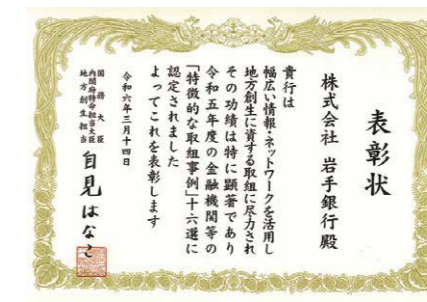 表彰状
株式会社 岩手銀行殿
貴行は
幅広い情報・ネットワークを活用し
地方創生に資する取組に尽力され
その功績は特に顕著であり
令和五年度の金融機関等の
「特徴的な取組事例」十六選に
認定されました
よってこれを表彰します
令和六年三月十四日
国務大臣
内閣府特命担当大臣
地方創生担当
自見はなこ